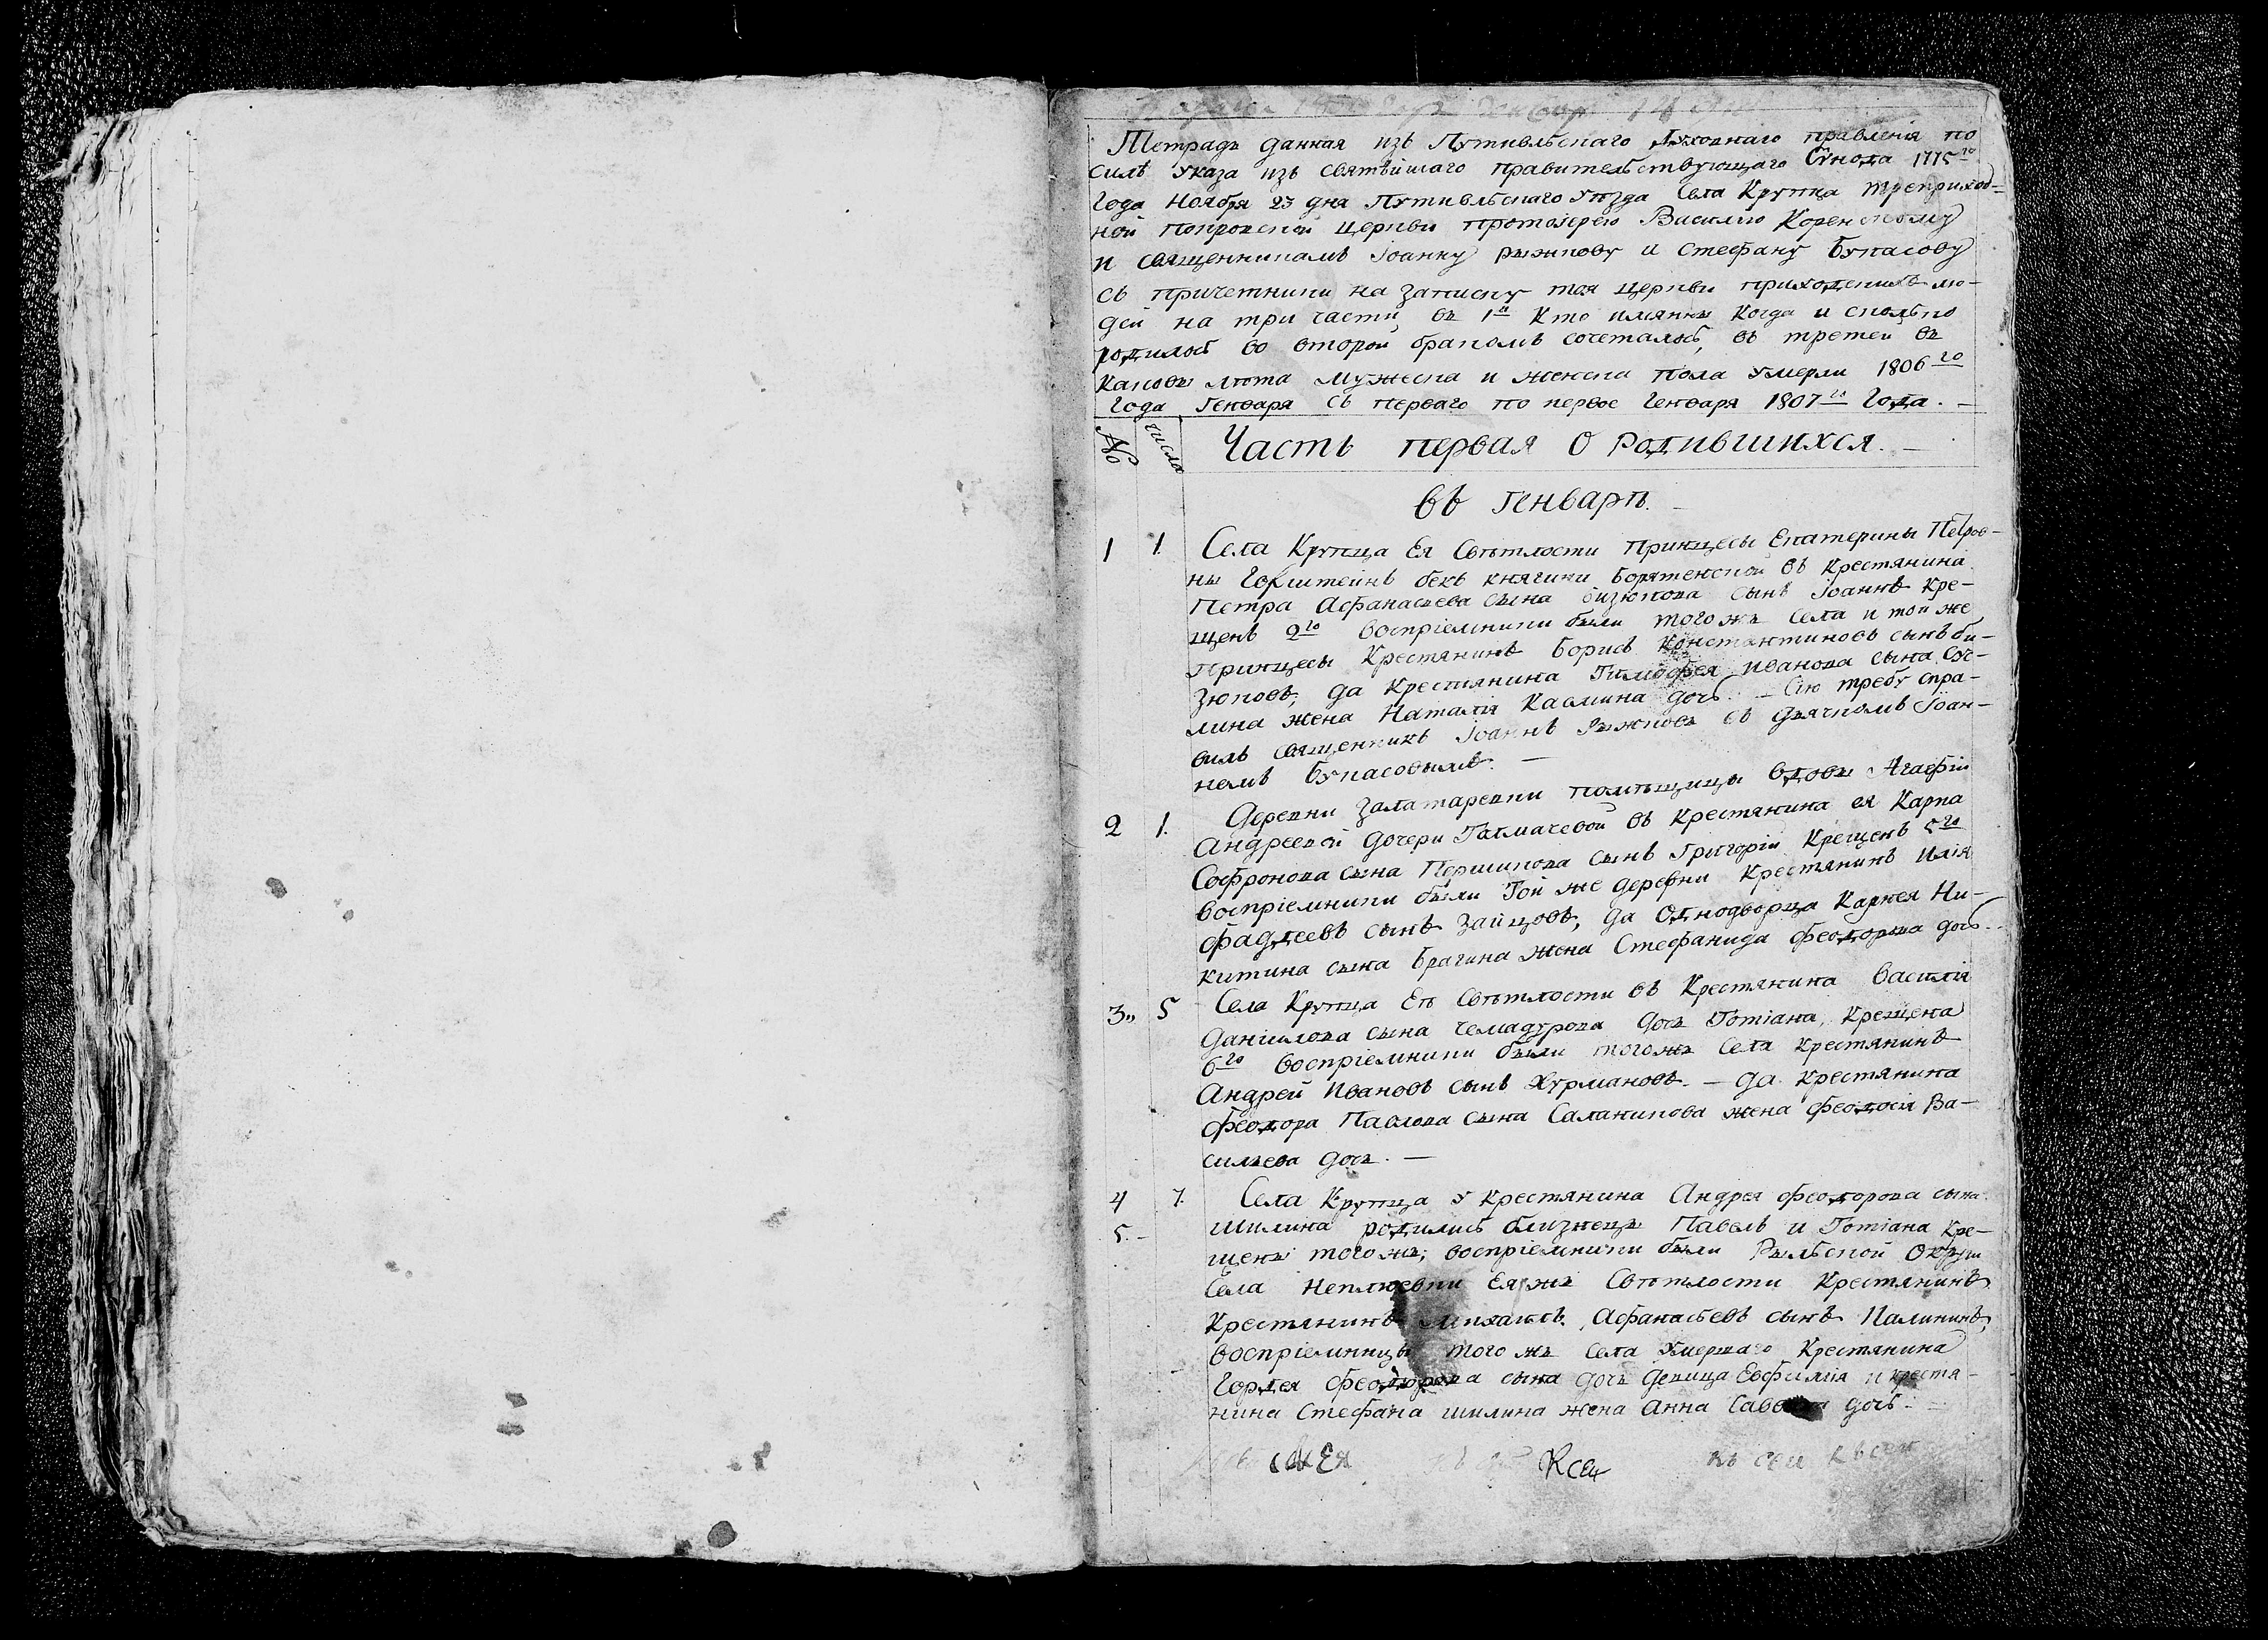 Тетрадь данная изъ Путивльскаго Духовнаго правленія по
силѣ указа изъ святѣйшаго правительствующаго Сѵнода 1775го
Года Ноября 23 дня Путивльскаго Уѣзда Села Крупца треприход-
ной покровской церкви протоіерею Василію Коренскому
и священникамъ Іоанну Рыжкову и Стефану Букасову
съ причетники на записку тоя церкви приходскихъ лю-
дей на три части, въ 1й Кто имянны Когда и сколько
родилось во второй бракомъ сочеталось, въ третей въ
Каковы лѣта мужеска и женска пола умерли 1806го
Года Генваря съ перваго по первое Генваря 1807го Года. —
№ числа Часть первая О Родившихся. —
въ Генварѣ. —
1 1. Села Крупца Ея Свѣтлости Принцесы Екатерины Петров-
ны Голштейнъ бекъ княгини Борятенской въ Крестянина
Петра Афанасьева сына бизюкова сынъ Іоаннъ Кре-
щенъ 2го воспріемники были тогожъ Села и той же
Принцесы Крестянинъ Борисъ Константиновъ сынъ би-
зюковъ, да Крестянина Тимофея Иванова сына Сус-
лина жена Наталія Касмина дочь. — Сію требу спра-
вилъ священникъ Іоаннъ Рыжковъ съ дьячкомъ Іоан-
номъ Букасовымъ. —
2 1. Деревни Залатаревки помѣщицы вдовы Агафіи
Андреевой дочери Толмачевой въ Крестянина ея Карпа
Софронова сына Першикова сынъ Григорій Крещенъ 5го
воспріемники были Той же деревни Крестянинъ Илія
фаддеевъ сынъ Зайцовъ, да Однодворца Карнея Ни-
китина сына Брагина жена Стефанида феодорова дочь.
3,, 5 Села Крупца Ея Свѣтлости въ Крестянина Василія
Даніилова сына Чемадурова дочь Тотіана, Крещена
6го воспріемники были тогожъ Села Крестянинъ
Андрей Ивановъ сынъ Хурмановъ. — да Крестянина
Феодора Павлова сына Саланикова жена Феодосія Ва-
сильева дочь. —
4 7. Села Крупца у Крестянина Андрея Феодорова сына
5.- Шилина родились близнецы Павелъ и Тотіана Кре-
щены тогожъ; воспріемники были Рыльской Округи
Села Неплюевки Ея жъ Свѣтлости Крестянинъ
Крестянинъ Михаилъ Афанасьевъ сынъ Калининъ,
воспріемницы того жъ Села Умершаго Крестянина
Гордея Феодорова сына дочь девица Евфимія и Крестя-
нина Стефана Шилина жена Анна дочь. —
къ сей